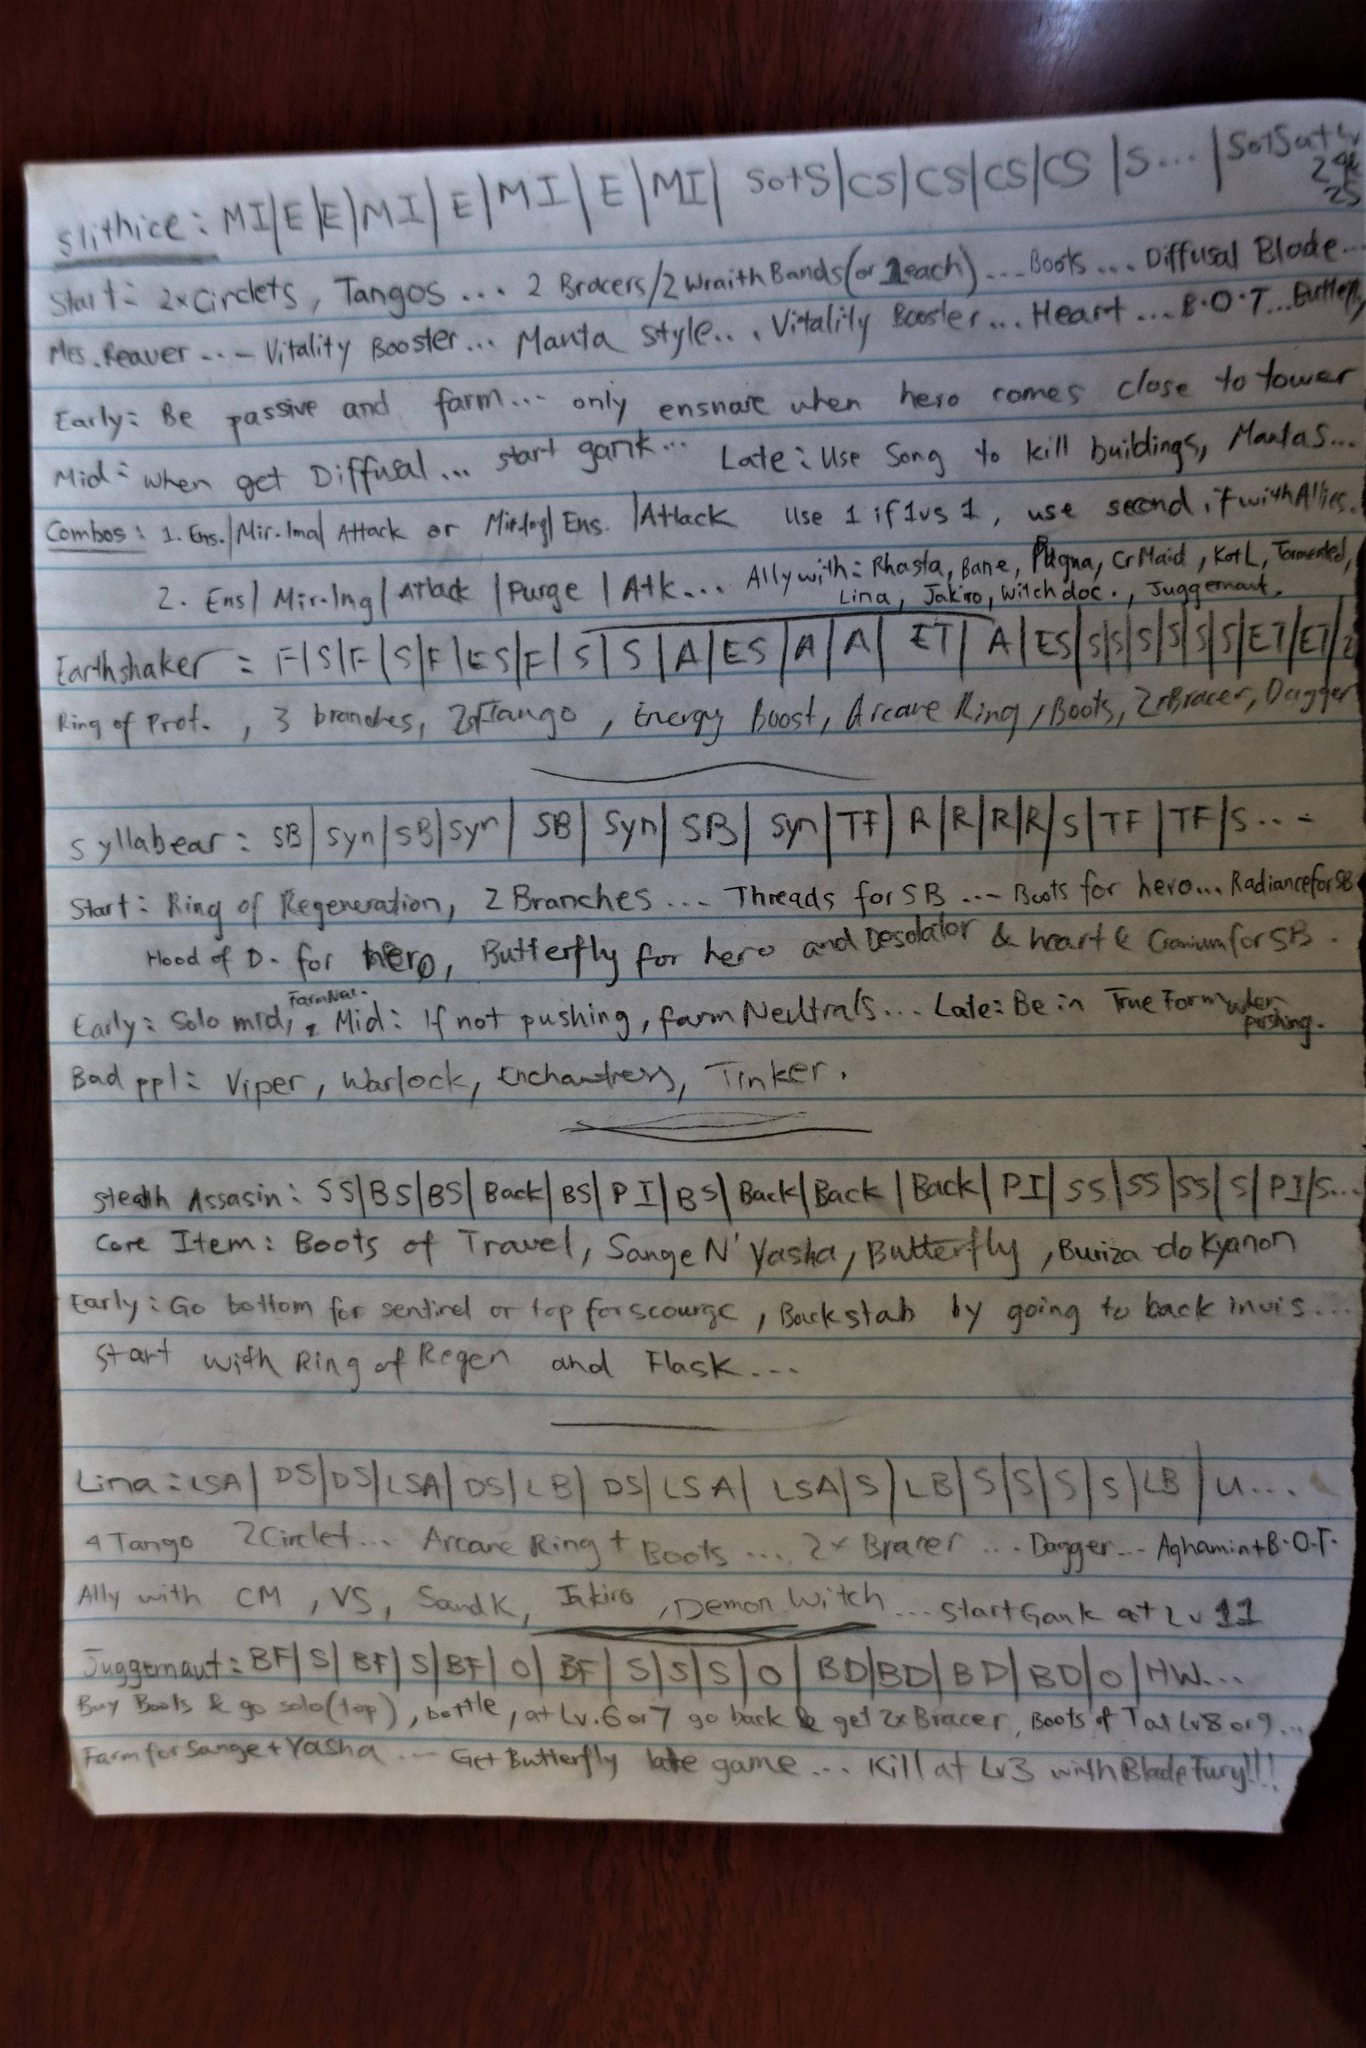 Slithice: MI|E|E|MI|E|MI|E|MI| SotS|CS|CS|CS|CS|S...|SotS at Lv 24 25
Start: 2xCirclets, Tangos ... 2 Bracers/2 Wraith Bands (or 1 each) ... Boots .... Diffusal Blade...
Mes. Reaver ... Vitality Booster... Manta Style... Vitality Booster... Heart ... B.O.T... Butterfly
Early: Be passive and farm... only ensnare when hero comes close to tower
Mid: when get Diffusal... start gank... Late: Use Song to kill buildings, Manta S...
Combos: 1. Ens./Mir.Ima/ Attack or Mir.Img/ Ens. /Attack Use 1 if 1 vs 1, use second if with Allies.
2. Ens/ Mir.Img/ Attack /Purge / Atk... Ally with: Rhasta, Bane, Pugna, CrMaid, KotL, Tormented,
Lina, Jakiro, Witch doc., Juggernaut.
Earthshaker = F|S|F|S|F|ES|F|S|S|A|ES|A|A|ET|A|ES|S|S|S|S|S|ET|ET|
Ring of Prot., 3 branches, 2xTango, Energy Boost, Arcane Ring, Boots, 2xBracer, Dagger
Syllabear: SB|Syn|SB|Syn|SB|Syn|SB|Syn|TF|R|R|R|R|S|TF|TF|S...
Start: Ring of Regeneration, 2 Branches ... Threads for SB ... Boots for hero... Radiance for SB
Hood of D. for hero, Butterfly for hero and Desolator & heart & Cranium for SB.
Early: Solo mid, Farm Neu. Mid: If not pushing, farm Neutrals... Late: Be in True Form when pushing.
Bad ppl: Viper, Warlock, Enchantress, Tinker.
Stealth Assasin: SS|BS|BS|Back|BS|PI|BS|Back|Back|Back|PI|SS|SS|SS|S|PI|S...
Core Item: Boots of Travel, Sange N' Yasha, Butterfly, Buriza do Kyanon
Early: Go bottom for sentinel or top for scourge, Backstab by going to back invis...
Start with Ring of Regen and Flask...
Lina: LSA|DS|DS|LSA|DS|LB|DS|LSA|LSA|S|LB|S|S|S|S|LB|U...
4 Tango 2 Circlet... Arcane Ring + Boots ... 2x Bracer ... Dagger... Aghamin+B.O.T.
Ally with CM, VS, SandK, Jakiro, Demon Witch ... Start Gank at Lv 11
Juggernaut: BF|S|BF|S|BF|O|BF|S|S|S|O|BD|BD|BD|BD|O|HW...
Buy Boots & go solo (top), bottle, at Lv. 6 or 7 go back & get 2x Bracer, Boots of T at Lv 8 or 9...
Farm for Sange + Yasha ... Get Butterfly late game... Kill at Lv3 with Blade Fury!!!